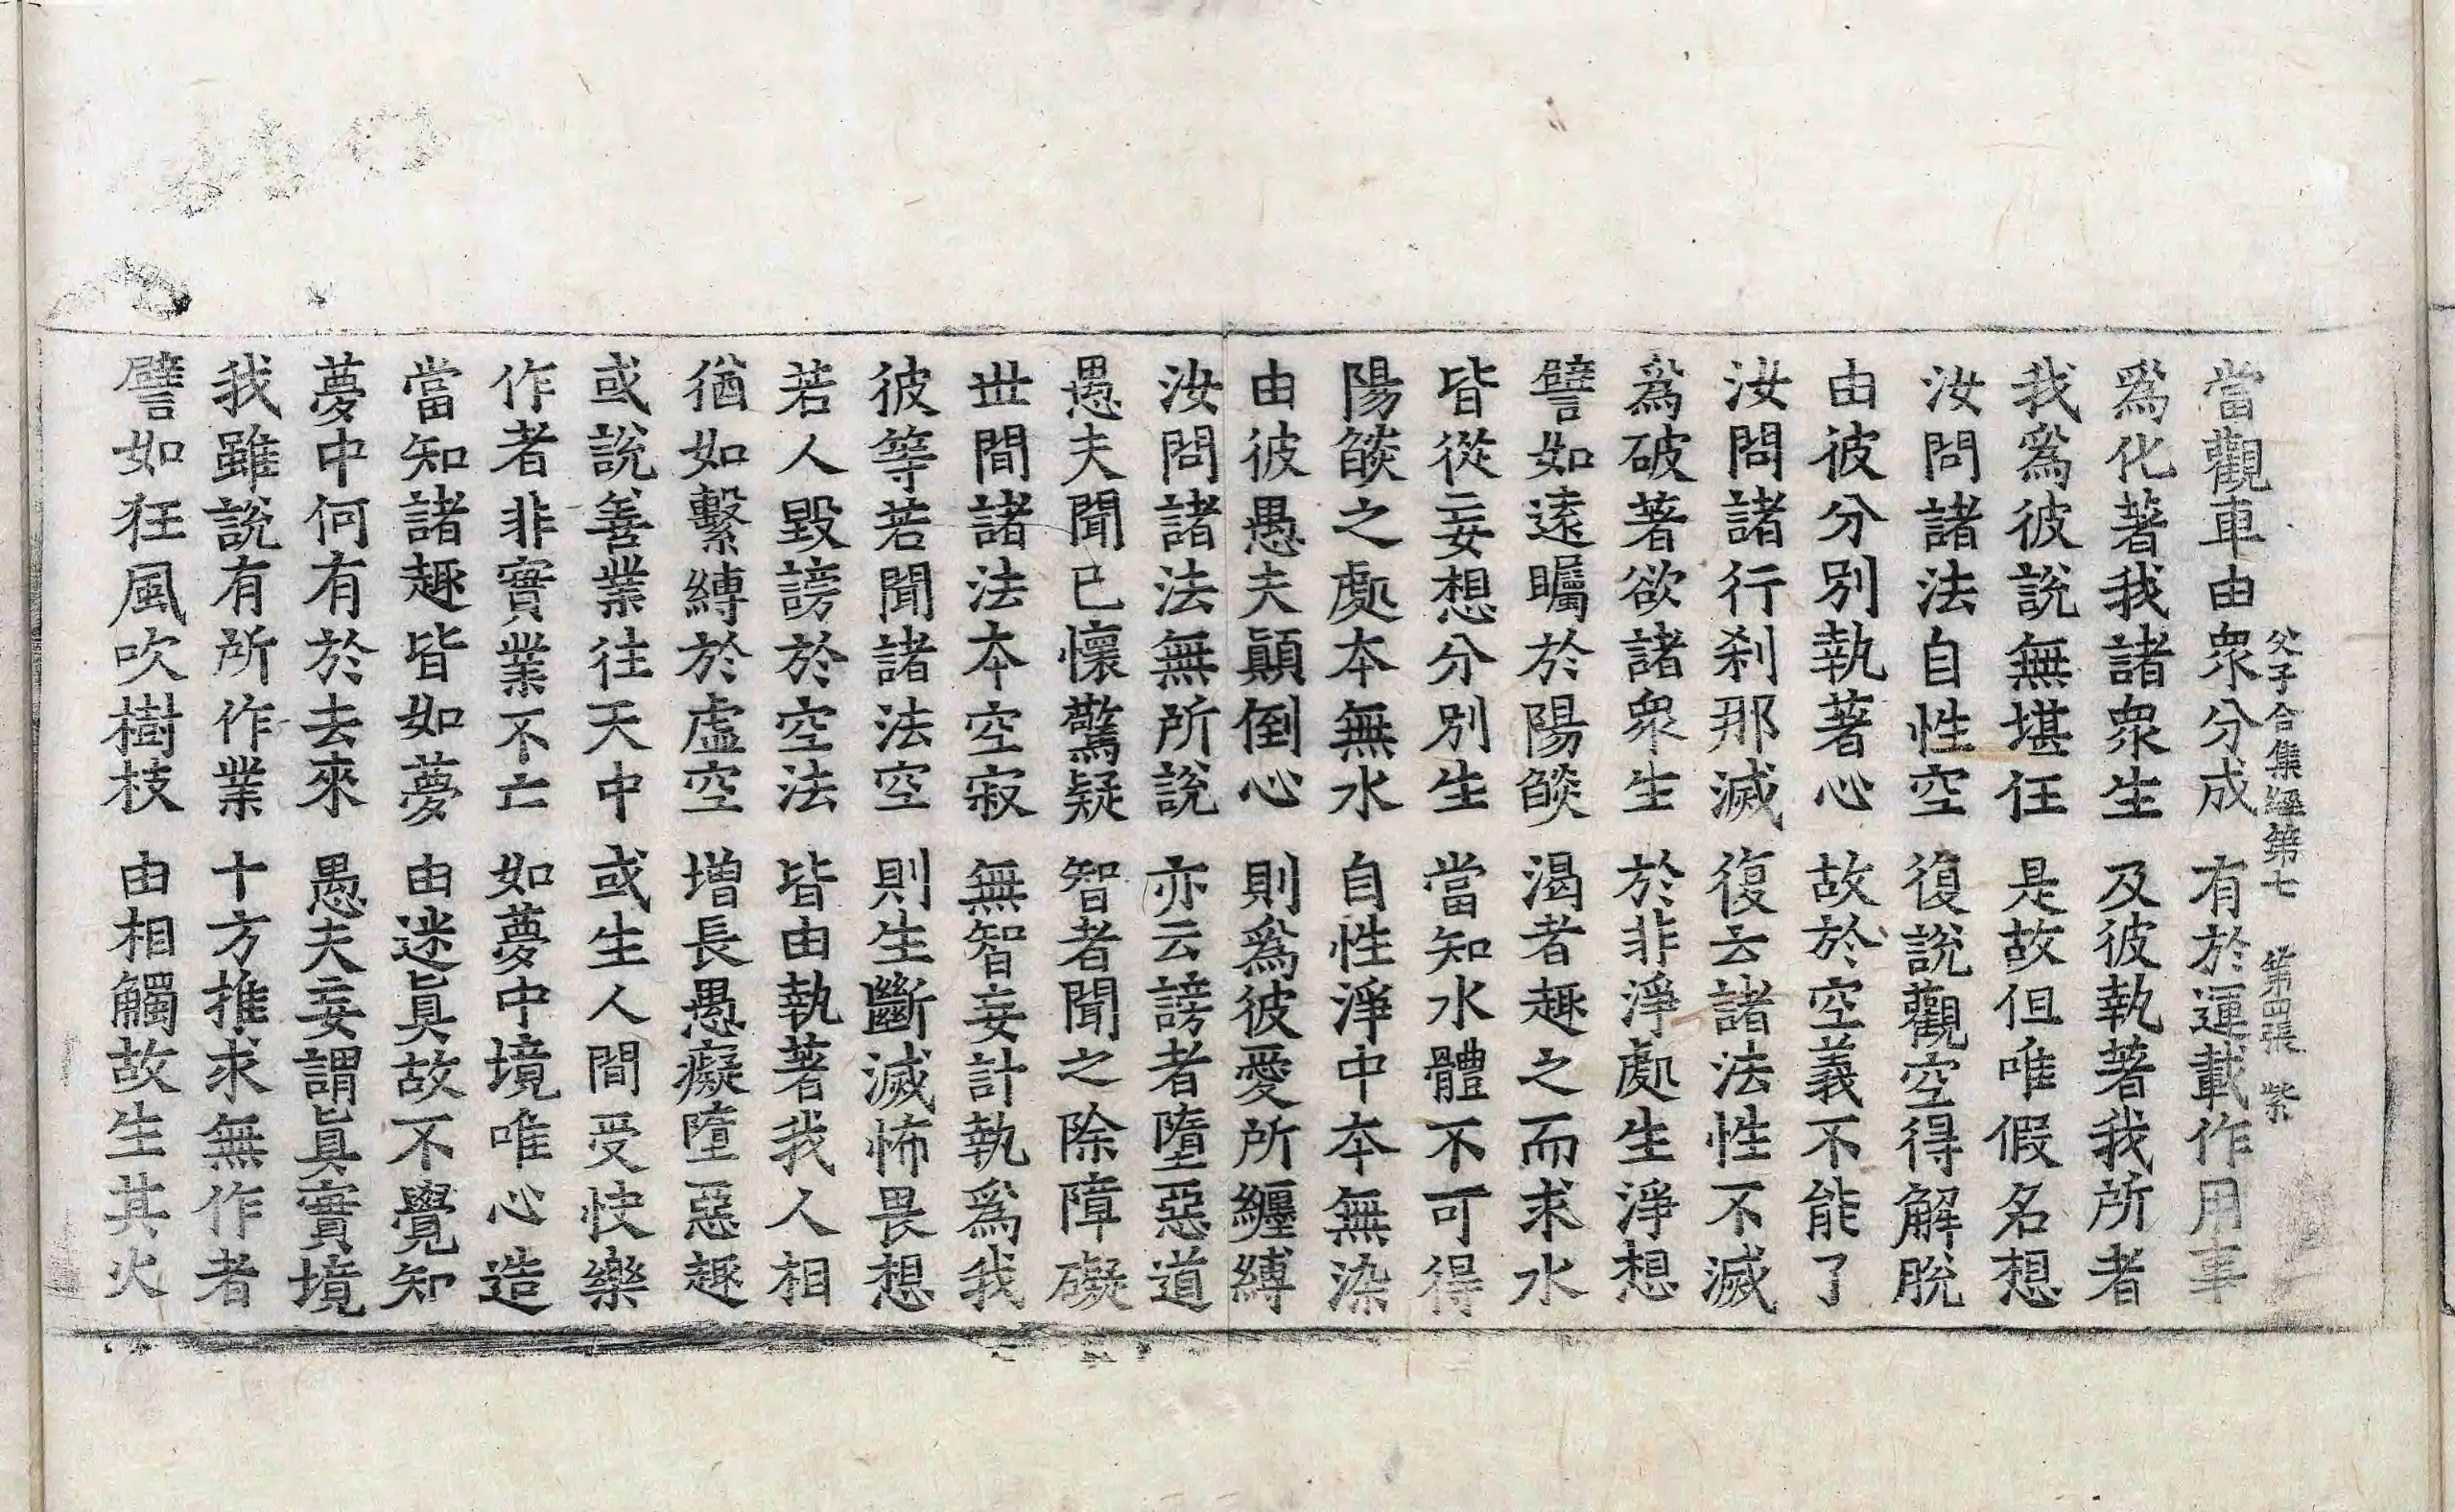 父子合集經第七 第四張 紫
當觀車由衆分成 有於運載作用事
爲化著我諸衆生 及彼執著我所者
我爲彼說無堪任 是故但唯假名想
汝問諸法自性空 復說觀空得解脫
由彼分別執著心 故於空義不能了
汝問諸行刹那滅 復云諸法性不滅
爲破著欲諸衆生 於非淨處生淨想
譬如遠矚於陽燄 渴者趣之而求水
皆從妄想分別生 當知水體不可得
陽燄之處本無水 自性淨中本無染
由彼愚夫顚倒心 則爲彼愛所纏縛
汝問諸法無所說 亦云謗者墮惡道
愚夫聞已懷驚疑 智者聞之除障礙
世間諸法本空寂 無智妄計執爲我
彼等若聞諸法空 則生斷滅怖畏想
若人毀謗於空法 皆由執著我人相
猶如繫縛於虛空 增長愚癡墮惡趣
或說善業往天中 或生人間受快樂
作者非實業不亡 如夢中境唯心造
當知諸趣皆如夢 由迷眞故不覺知
夢中何有於去來 愚夫妄謂眞實境
我雖說有所作業 十方推求無作者
譬如狂風吹樹枝 由相觸故生其火